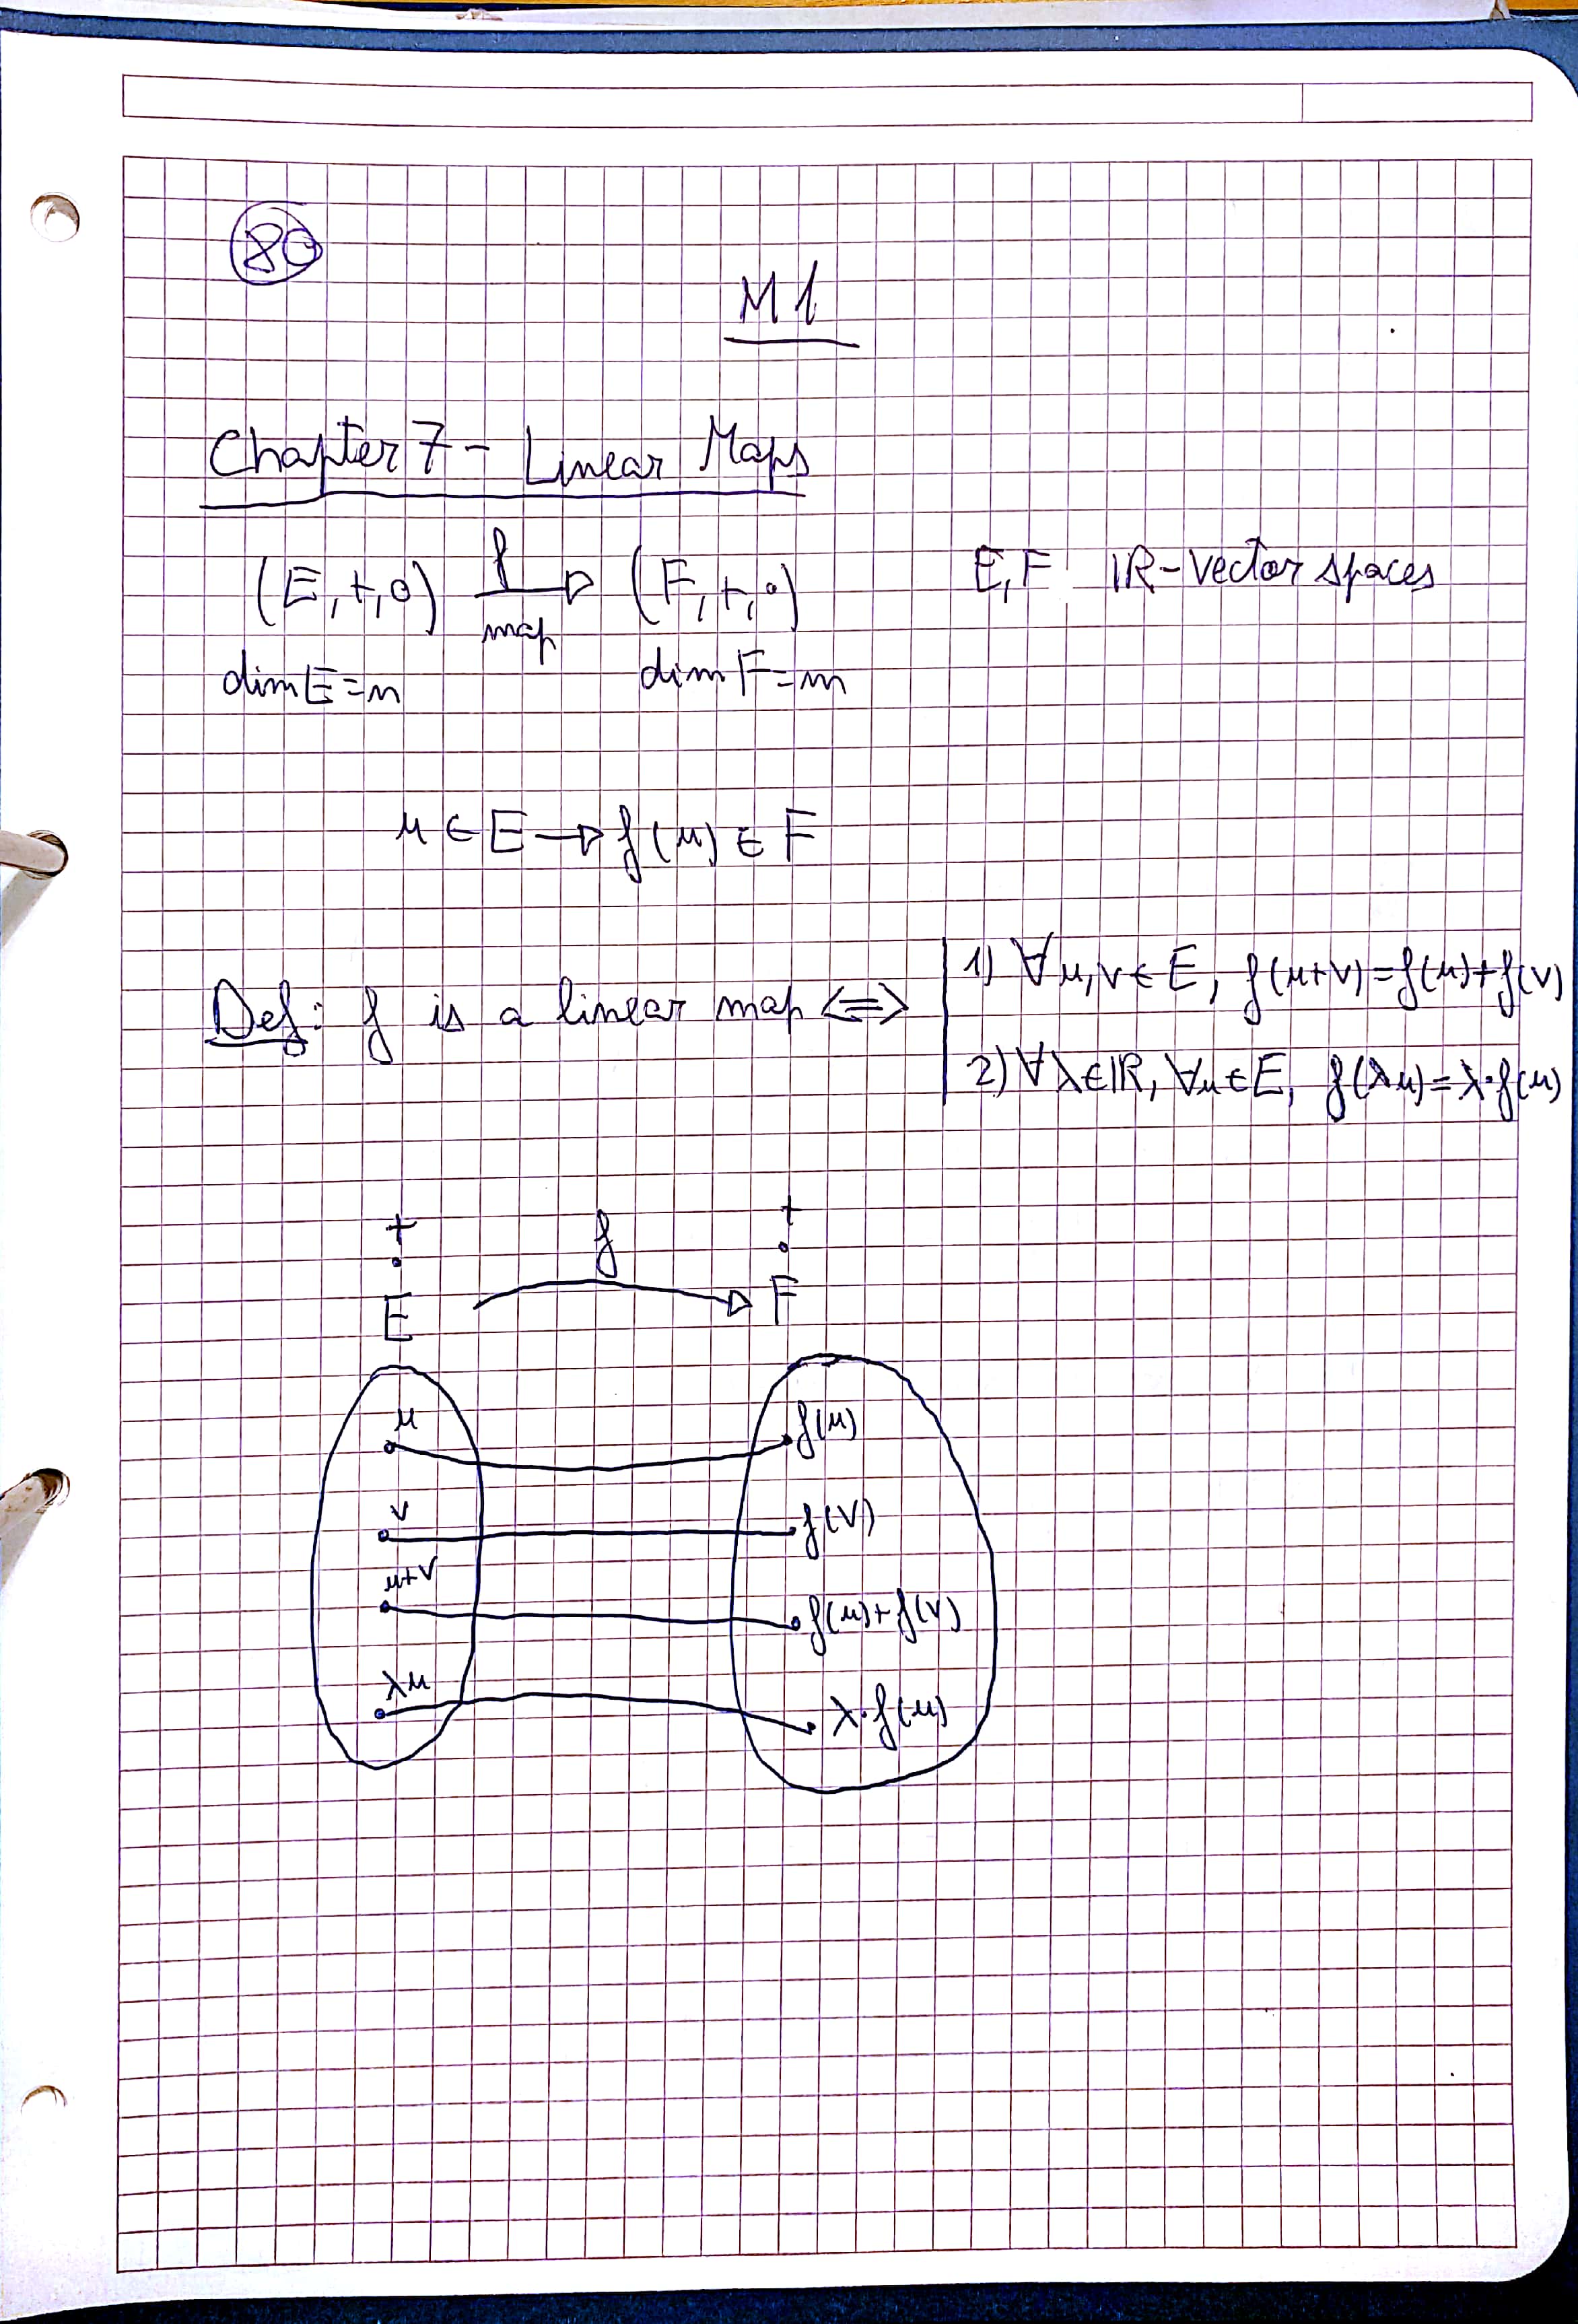 80
M1
Chapter 7 - Linear Maps
(E,+,∘) f→ map (F,+,∘) E,F ℝ-vector spaces
dim E = n dim F = m
u ∈ E → f(u) ∈ F
Def: f is a linear map ⟺ | 1) ∀u,v ∈ E, f(u+v)=f(u)+f(v)
2) ∀λ∈ℝ, ∀u∈E, f(λu)=λ·f(u)
+ +
· f ·
E → F
u f(u)
v f(v)
u+v f(u)+f(v)
λu λ·f(u)